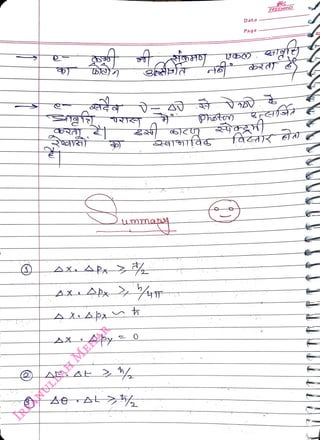 Date
Page
→ e- कभी भी संक्रमण एकल आवृत्ति
का फोटोन उत्सर्जित नहीं करता है।
→ e- सदैव ν-Δν से ν+Δν के
आवृत्ति परास में फोटोन उत्सर्जित
करता है। इसी कारण स्पेक्ट्रमी
रेखाओं का स्वाभाविक विस्तार होता
है।
Summary
① Δx. Δpx ≥ ħ/2
Δx. Δpx ≥ h/4π
Δx. Δpx ~ ħ
Δx. Δpy = 0
② ΔE. Δt ≥ ħ/2
③ Δθ. ΔL ≥ ħ/2
IRFANULLAH MEHAR